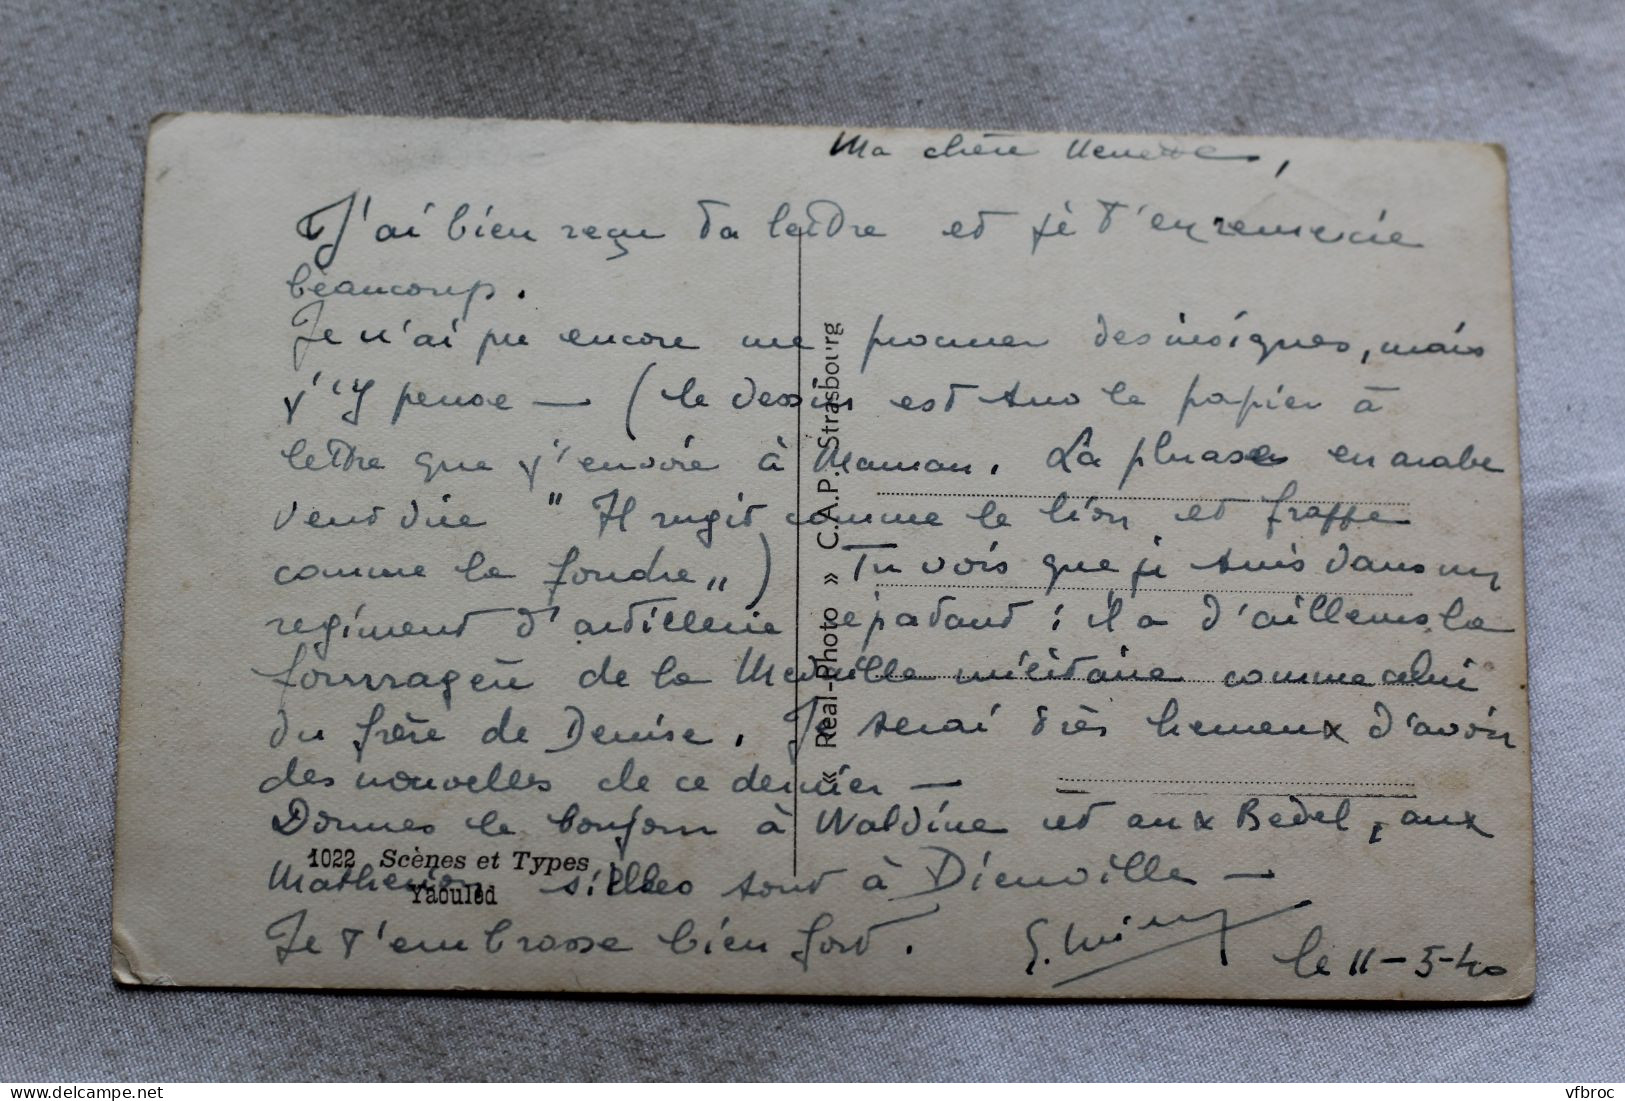 Ma chère
J'ai bien reçu ta lettre et je t'en remercie
beaucoup.
Je n'ai pu encore me procurer des insignes, mais
j'y pense — (le dessin est sur le papier à
lettre que j'envoie à Maman. La phrase en arabe
veut dire "Il rugit comme le lion et frappe
comme la foudre") Tu vois que je suis dans un
regiment d'artillerie epatant : il a d'ailleurs la
fourragère de la Medaille militaire comme celui
du frère de Denise. Je serai très heureux d'avoir
des nouvelles de ce dernier —
Donnes le bonjour à Waldine et aux Bedel, aux
s'illes sont à Dienville —
Je t'embrasse bien fort.
le 11-5-40
1022 Scènes et Types
Yaouled
« Real-Photo » C.A.P. Strasbourg
vfbroc